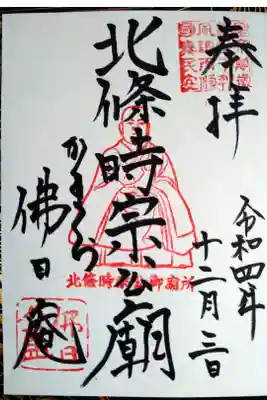 奉拝
令和四年
十二月三日
北條時宗公廟
かまくら
佛日庵
北條時宗公御廟所